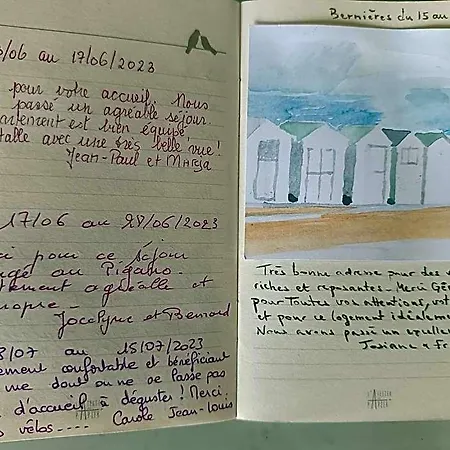 /06 au 17/06/2023
pour votre accueil. Nous
passé un agréable séjour
artement est bien équipé
talle avec une très belle vue!
Jean-Paul et
17/06 au 28/06/2023
ci pour ce séjour
au
tement agréable et
propre.
Jocelyne et Bernard
/07 au 15/07/2023
ement confortable et bénéficiant
vue dont on ne se passe pas
d'accueil à déguster! Merci
vélos.... Carole Jean-Louis
Bernières du 15 au
Très bonne adresse pour des v
riches et reposantes. Merci Gé
pour toutes vos attentions, vot
et pour ce logement idéaleme
Nous avons passé un
Josiane & F
L'ATELIER
PAPIER